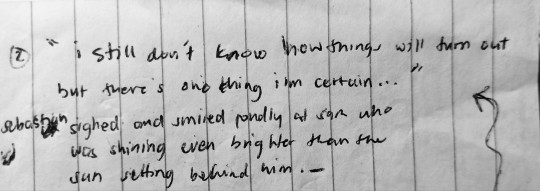 ② " i still don't know how things will turn out
but there's one thing i'm certain... "
sebastian sighed and smiled fondly at sam who
was shining even brighter than the
sun setting behind him. –